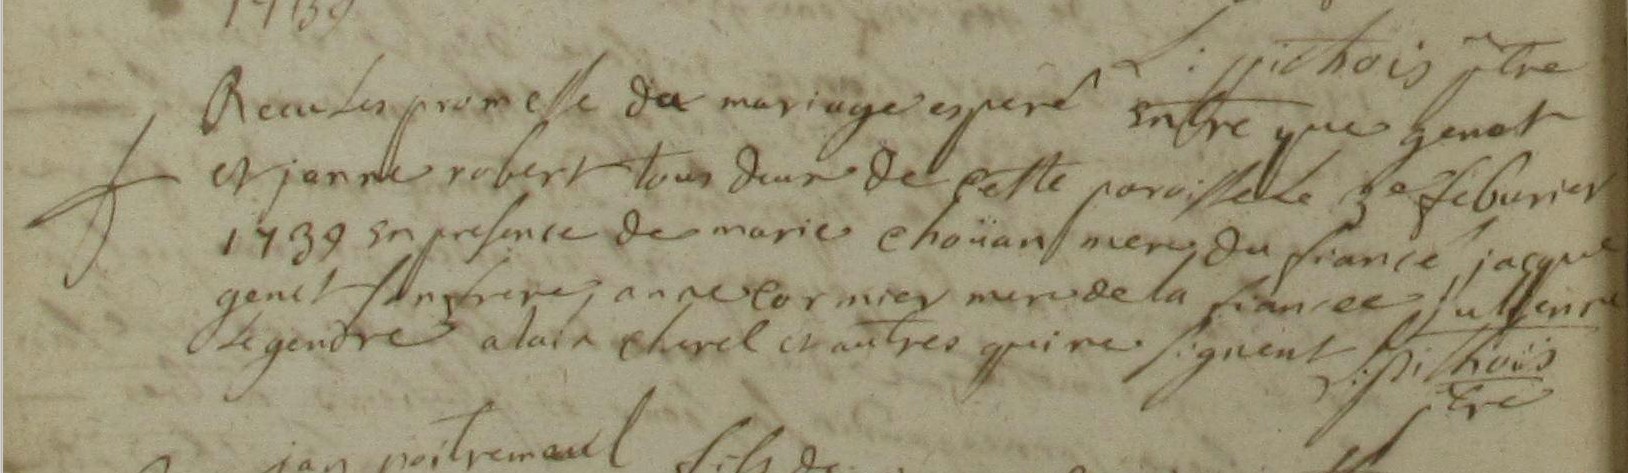 1739
L: pithois ptre
Receu les promesse de mariage esperé Entre que genet
et janne robert tous deux de Cette paroisse Le 3e feburier
1739 En presence de marie choüan mere du fiancé jacque
genet son frere, anne Cormier mere de la fiancee,
Legendre alain cherel et autres qui ne signent L: pithoüs
ptre
jan poitremoul fils de